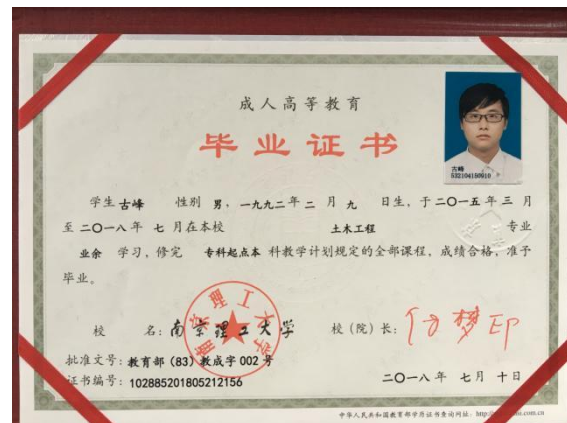 成人高等教育
毕业证书
古峰
532104150910
学生 古峰 性别 男，一九九二年二月九日生，于二〇一五年三月
至二〇一八年七月在本校 土木工程 专业
业余 学习，修完 专科起点本科教学计划规定的全部课程，成绩合格，准予
毕业。
校 名：南京理工大学 校（院）长：
南京理工大学
批准文号：教育部（83）教成字002号
证书编号：102885201805212156
二〇一八年 七月 十日
中华人民共和国教育部学历证书查询网址：